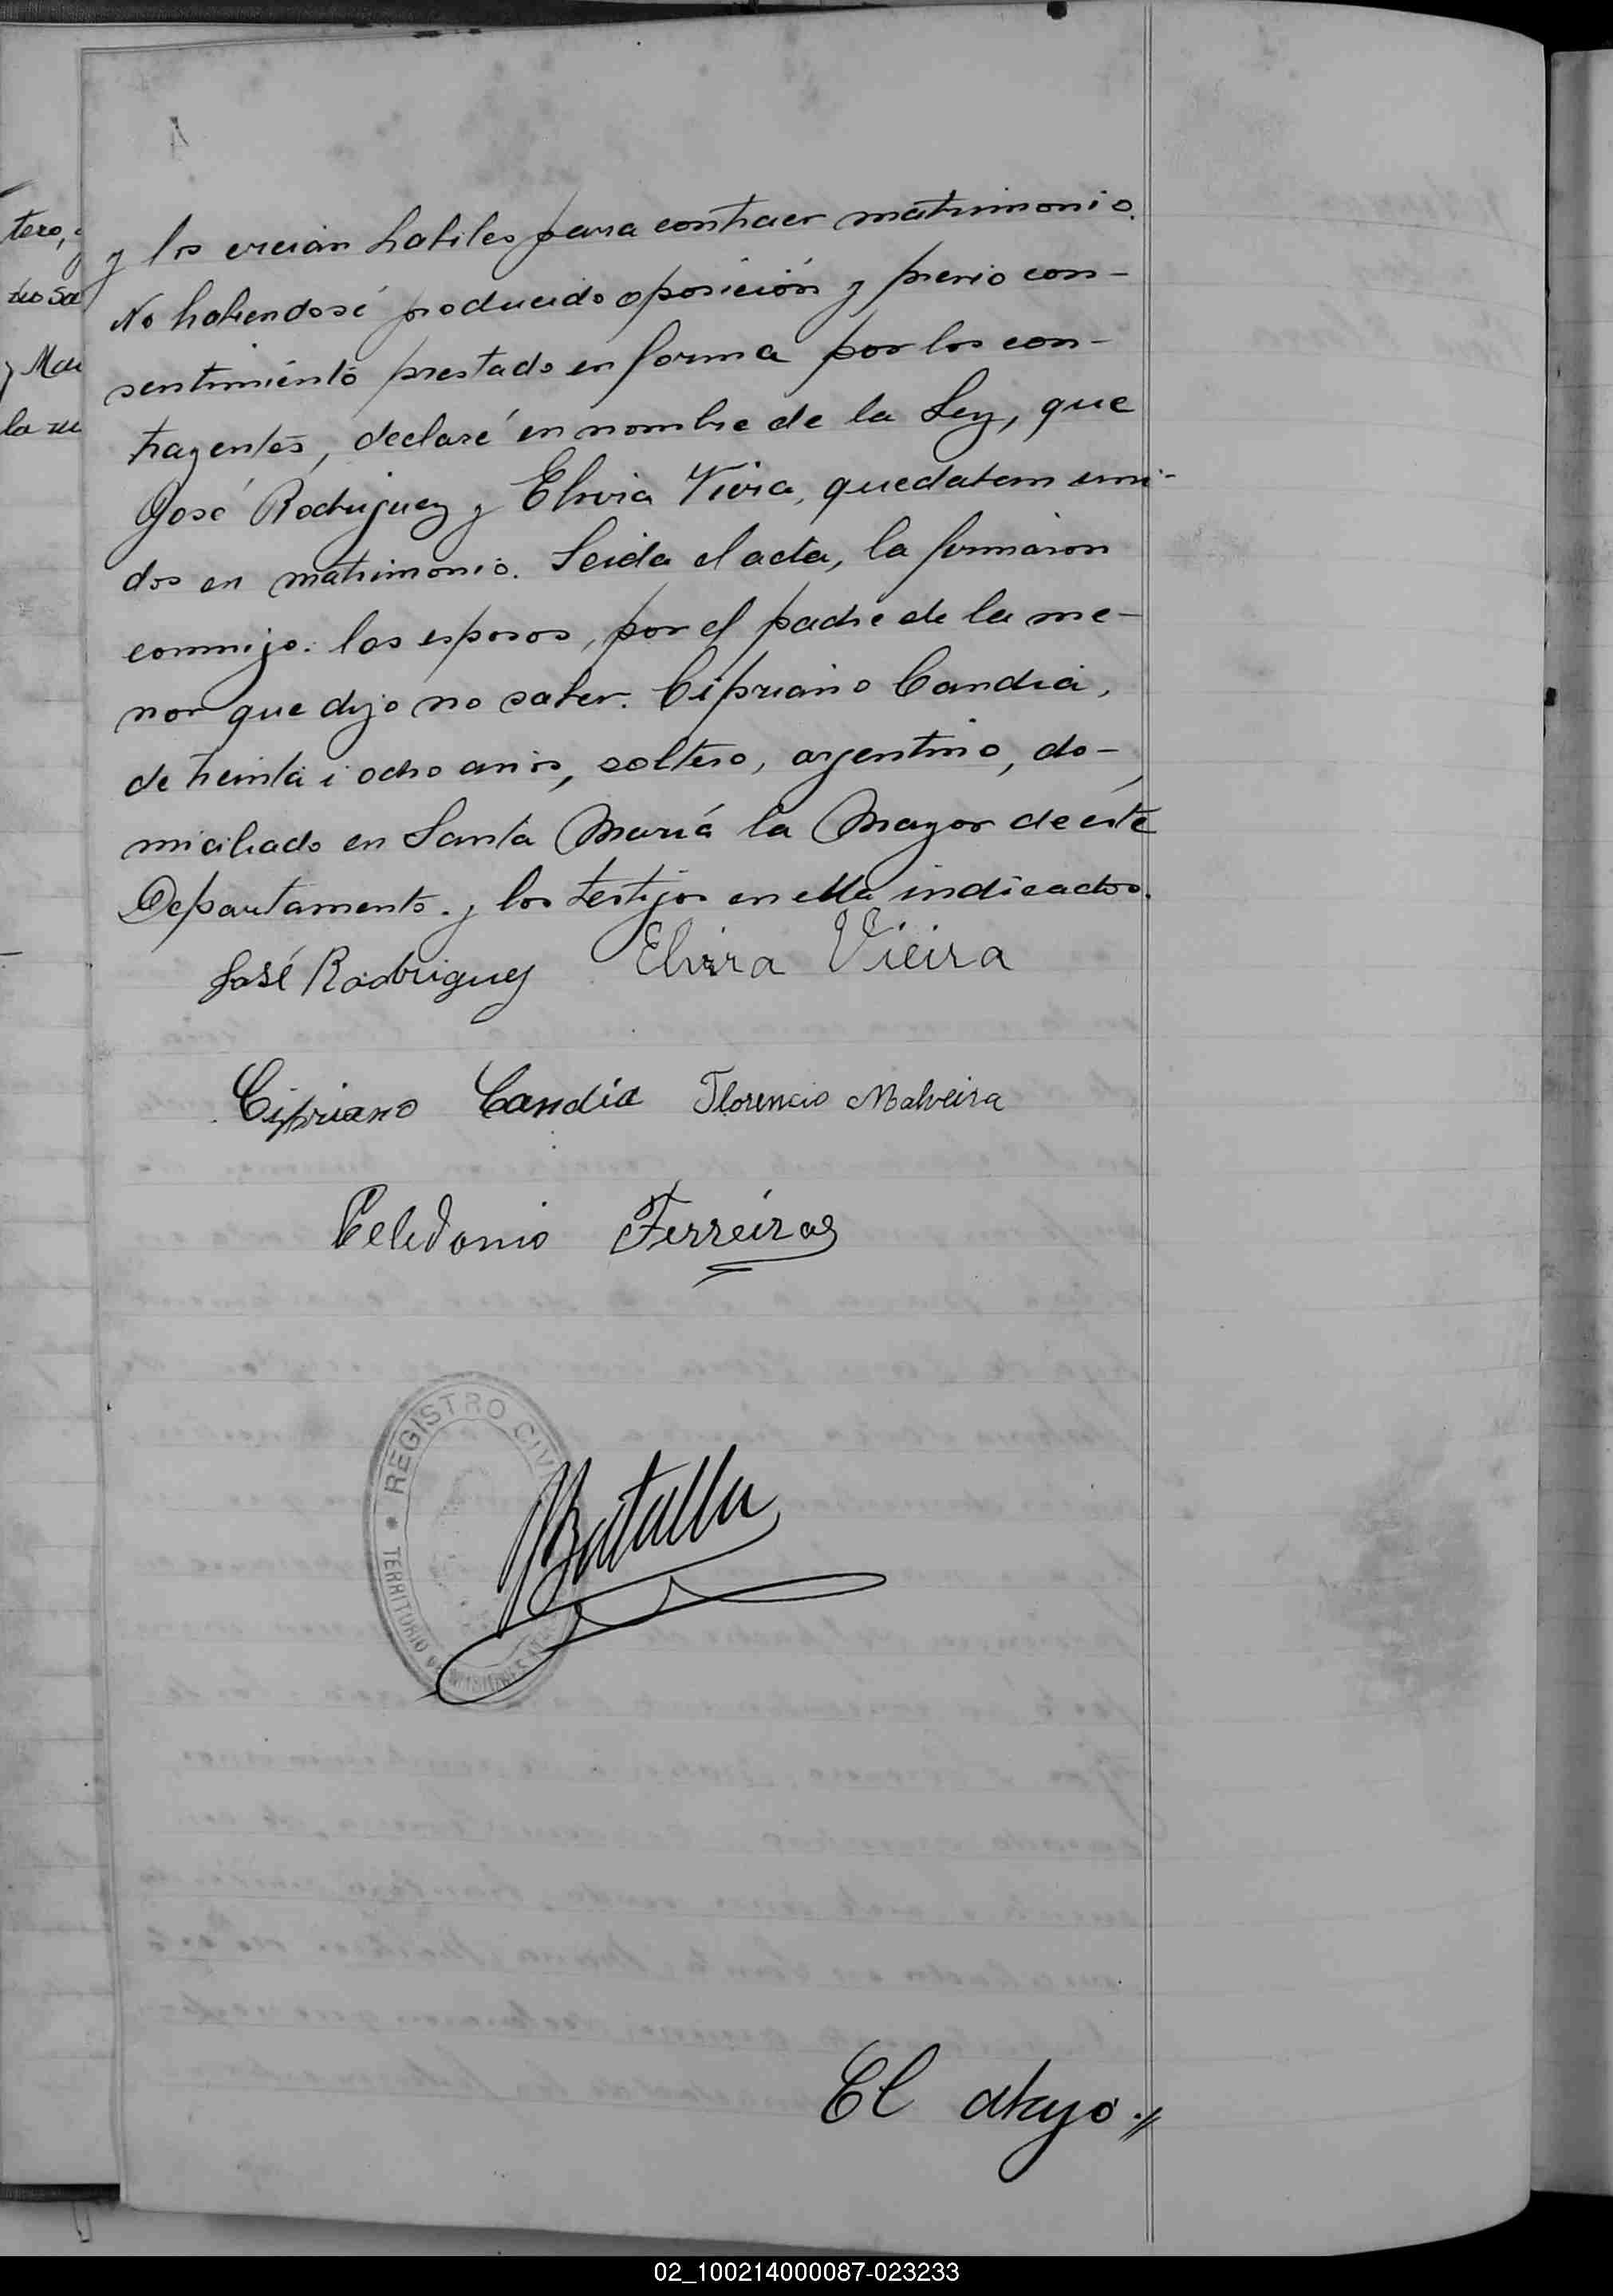 tero,
y los creian habiles para contraer matrimonio.
No habiendosé producido oposición y previo con-
y Mar
sentimiento prestado en forma por los con-
la
trayentes, declaré en nombre de la Ley, que
José Rodriguez y Elvira Viera, quedaban uni-
dos en matrimonio. Leida el acta, la firmaron
conmigo: los esposos, por el padre de la me-
nor que dijo no saber. Cipriano Candia,
de treinta i ocho años, soltero, argentino, do-
miciliado en Santa María la Mayor de éste
Departamento. y los testigos en ella indicados.
José Rodriguez Elvira Vieira
Cipriano Candia Florencio Malveira
Celedonio Ferreira
REGISTRO CIVIL
TERRITORIO DE MISIONES
Batalla
El
02_100214000087-023233